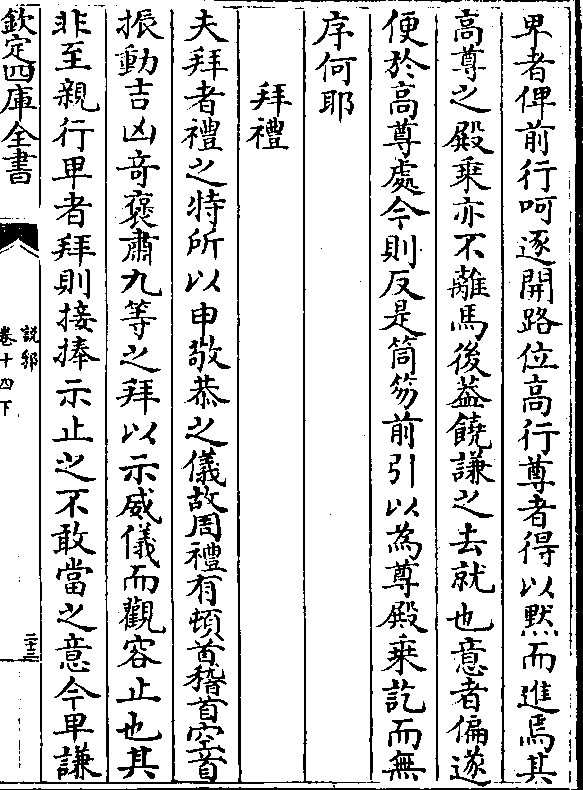 卑者俾前行呵逐開路位高行尊者得以黙而進焉其
高尊之殿乗亦不離馬後葢饒謙之去就也意者偏遂
便於高尊處今則反是筒笏前引以為尊殿乗訖而無
序何耶
拜禮
夫拜者禮之特所以申敬恭之儀故周禮有頓首稽首空首
振動吉凶竒褒肅九等之拜以示威儀而觀容止也其
非至親行卑者拜則接捧示止之不敢當之意今卑謙
欽定四庫全書
說郛
卷十四下
二十三